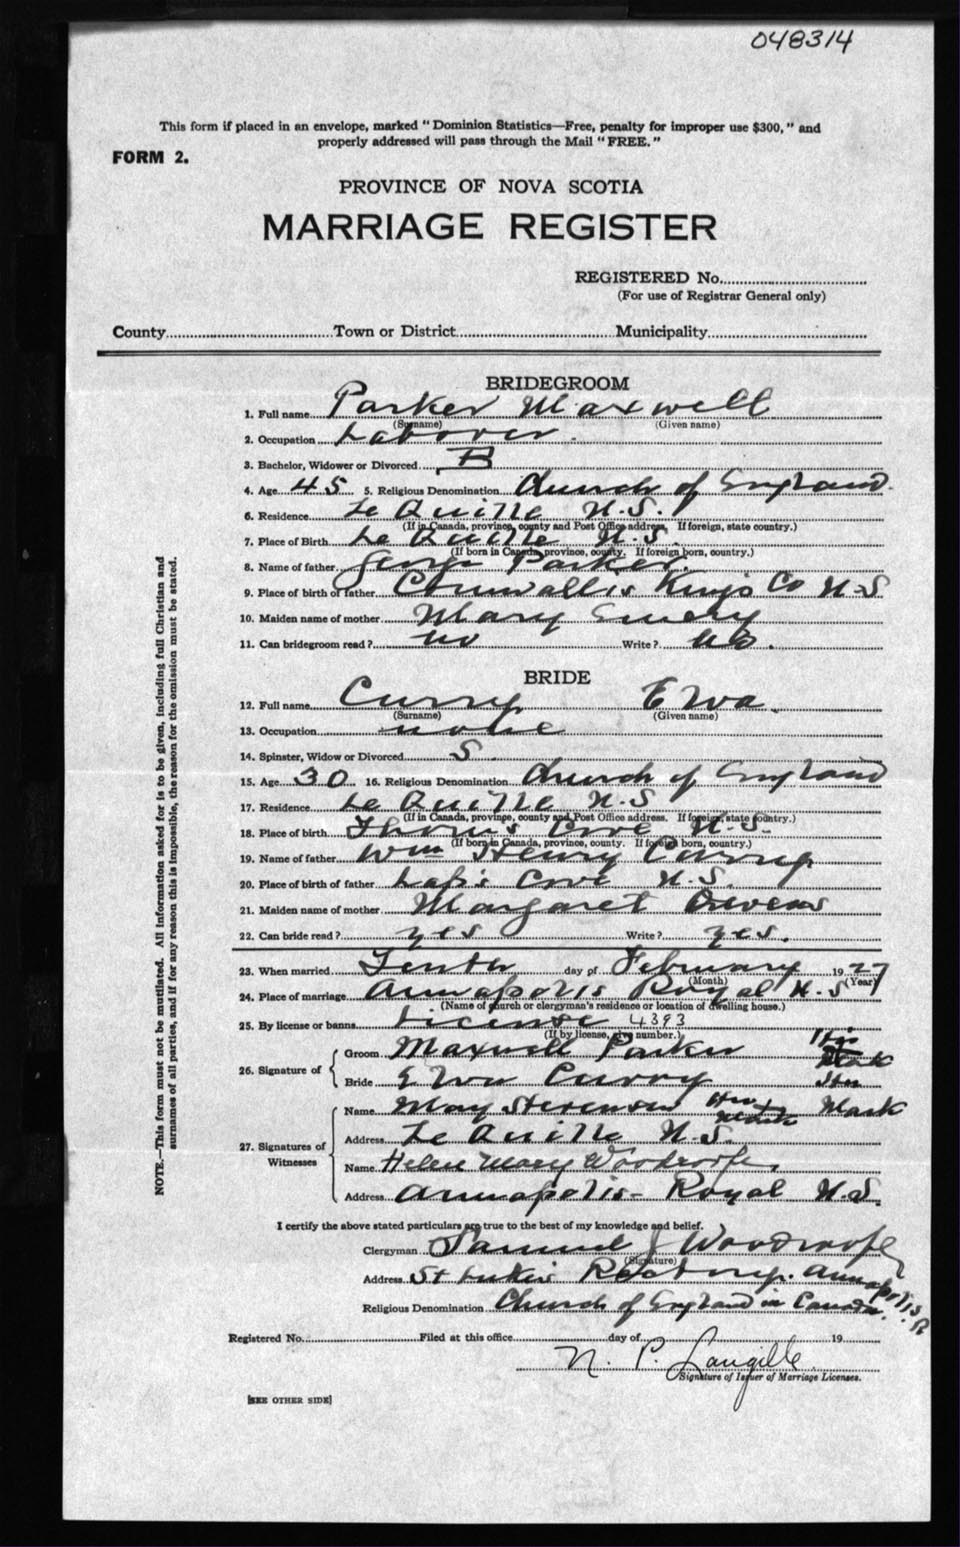 048314
This form if placed in an envelope, marked "Dominion Statistics—Free, penalty for improper use $300," and
properly addressed will pass through the Mail "FREE."
FORM 2.
PROVINCE OF NOVA SCOTIA
MARRIAGE REGISTER
REGISTERED No.
(For use of Registrar General only)
County Town or District Municipality
BRIDEGROOM
1. Full name Parker Maxwell
(Surname) (Given name)
2. Occupation Laborer
3. Bachelor, Widower or Divorced B
4. Age 45 5. Religious Denomination Church of England
6. Residence Le Quille N.S.
(If in Canada, province, county and Post Office address, If foreign, state country.)
7. Place of Birth Le Quille N.S.
(If born in Canada, province, county. If foreign born, country.)
8. Name of father George Parker
9. Place of birth of father Cornwallis Kings Co N-S
10. Maiden name of mother Mary Emery
11. Can bridegroom read? no Write? no.
BRIDE
12. Full name Curry Elva
(Surname) (Given name)
13. Occupation none
14. Spinster, Widow or Divorced S
15. Age 30 16. Religious Denomination Church of England
17. Residence Le Quille N.S
(If in Canada, province, county and Post Office address. If foreign, state country.)
18. Place of birth Thorn's Cove N.S.
(If born in Canada, province, county. If foreign born, country.)
19. Name of father Wm Henry Curry
20. Place of birth of father Cove N.S.
21. Maiden name of mother Margaret Owens
22. Can bride read? yes Write? yes.
23. When married Tenth day of February 1927
(Month) (Year)
24. Place of marriage Annapolis Royal N.S
(Name of church or clergyman's residence or location of dwelling house.)
25. By license or banns License 4393
(If by license, give number.)
26. Signature of Groom Maxwell Parker His Mark
Bride Elva Curry Her Mark
27. Signatures of Witnesses
Name May Stevenson Her Mark
Address Le Quille N.S.
Name Helen Mary Woodroofe
Address Annapolis-Royal N.S.
I certify the above stated particulars are true to the best of my knowledge and belief.
Clergyman Samuel J Woodroofe
(Signature)
Address St Luke's Rectory. Annapolis R
Religious Denomination Church of England in Canada.
Registered No. Filed at this office day of 19
N. P. Langille
Signature of Issuer of Marriage Licenses.
[SEE OTHER SIDE]
NOTE.—This form must not be mutilated. All information asked for is to be given, including full Christian and
surnames of all parties, and if for any reason this is impossible, the reason for the omission must be stated.